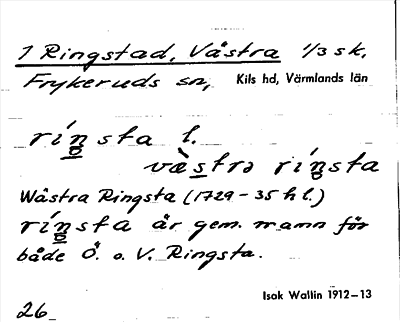 1 Ringstad, Västra 1/3 sk.
Frykeruds sn, Kils hd, Värmlands län
ríṉsta l.
væ̀stra ríṉsta
Wästra Ringsta (1729-35 h l.)
ríṉsta är gem. namn för
både Ö. o. V. Ringsta.
Isak Wallin 1912–13
26